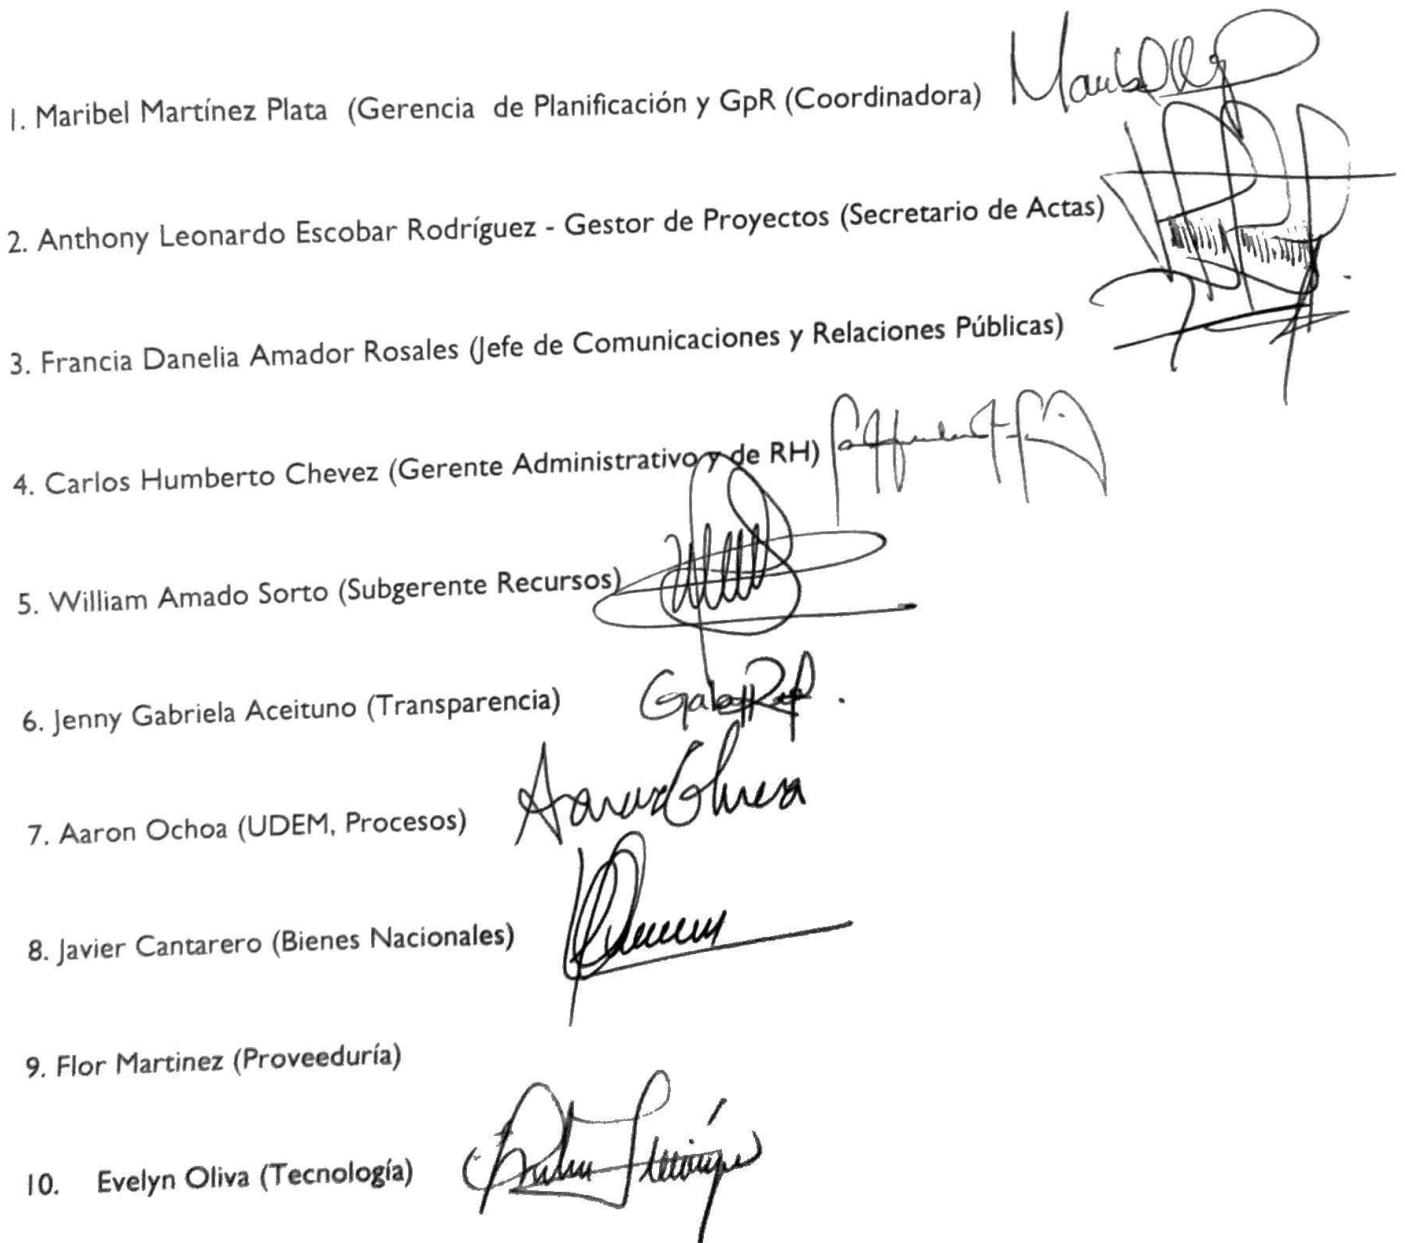 1. Maribel Martínez Plata (Gerencia de Planificación y GpR (Coordinadora)
2. Anthony Leonardo Escobar Rodríguez - Gestor de Proyectos (Secretario de Actas)
3. Francia Danelia Amador Rosales (Jefe de Comunicaciones y Relaciones Públicas)
4. Carlos Humberto Chevez (Gerente Administrativo y de RH)
5. William Amado Sorto (Subgerente Recursos)
6. Jenny Gabriela Aceituno (Transparencia)
7. Aaron Ochoa (UDEM, Procesos)
8. Javier Cantarero (Bienes Nacionales)
9. Flor Martinez (Proveeduría)
10. Evelyn Oliva (Tecnología)